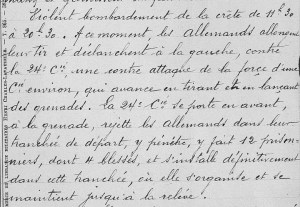 Violent bombardement de la crête de 11h30
à 20h30. A ce moment, les Allemands allongent
leur tir et déclanchent à la gauche, contre
la 24e Cie, une contre attaque de la force d'une
Cie environ, qui avance en tirant et en lançant
des grenades. La 24e Cie se porte en avant,
à la grenade, rejette les Allemands dans leur
tranchée de départ, y pénètre, y fait 12 prison-
niers, dont 4 blessés, et s'installe définitivement
dans cette tranchée, où elle s'organise et se
maintient jusqu'à la relève.